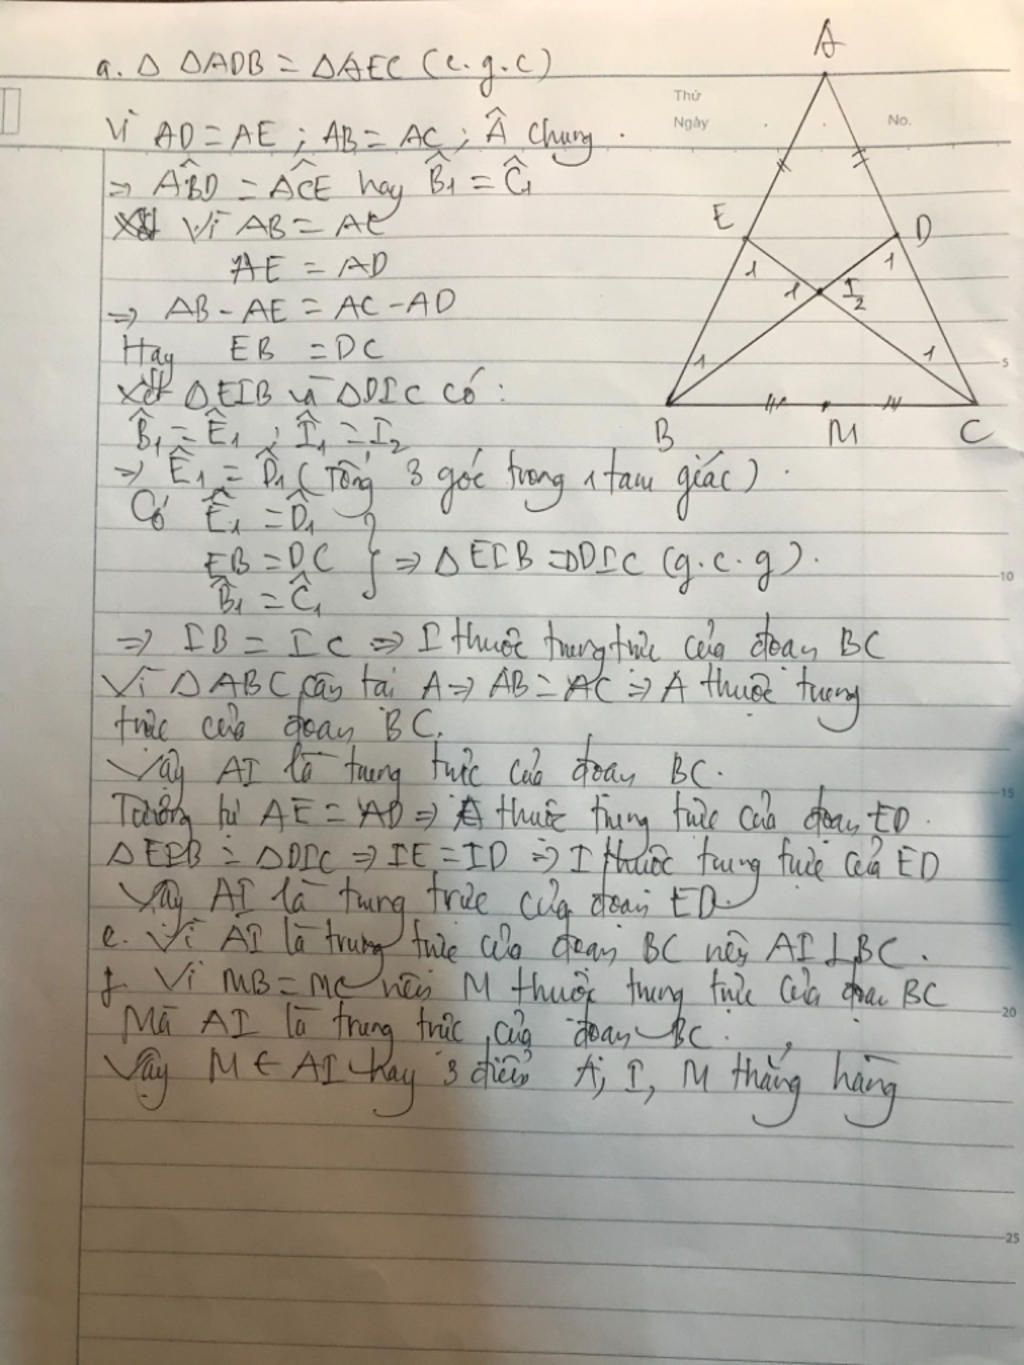 A
a. Δ ΔADB = ΔAEC (c.g.c)
Thứ
Ngày
No.
Vì AD = AE ; AB = AC ; Â chung.
⇒ ABD̂ = ACÊ hay B̂1 = Ĉ1
Vì AB = AC
AE = AD
⇒ AB - AE = AC - AD
Hay EB = DC
Xét ΔEIB và ΔDIC có:
B̂1 = Ê1 ; Î1 = I2
⇒ Ê1 = D̂1 (Tổng 3 góc trong 1 tam giác).
Có Ê1 = D̂1
EB = DC } ⇒ ΔEIB = ΔDIC (g.c.g).
B̂1 = Ĉ1
E D
1 1 1 I 2
1 1
B M C
5
10
⇒ IB = IC ⇒ I thuộc trung trực của đoạn BC
Vì ΔABC cân tại A ⇒ AB = AC ⇒ A thuộc trung
trực của đoạn BC.
Vậy AI là trung trực của đoạn BC.
15
Tương tự AE = AD ⇒ A thuộc trung trực của đoạn ED.
ΔEIB = ΔDIC ⇒ IE = ID ⇒ I thuộc trung trực của ED
Vậy AI là trung trực của đoạn ED.
e. Vì AI là trung trực của đoạn BC nên AI ⊥ BC.
f. Vì MB = MC nên M thuộc trung trực của đoạn BC
20
Mà AI là trung trực của đoạn BC.
Vậy M ∈ AI hay 3 điểm A, I, M thẳng hàng
25